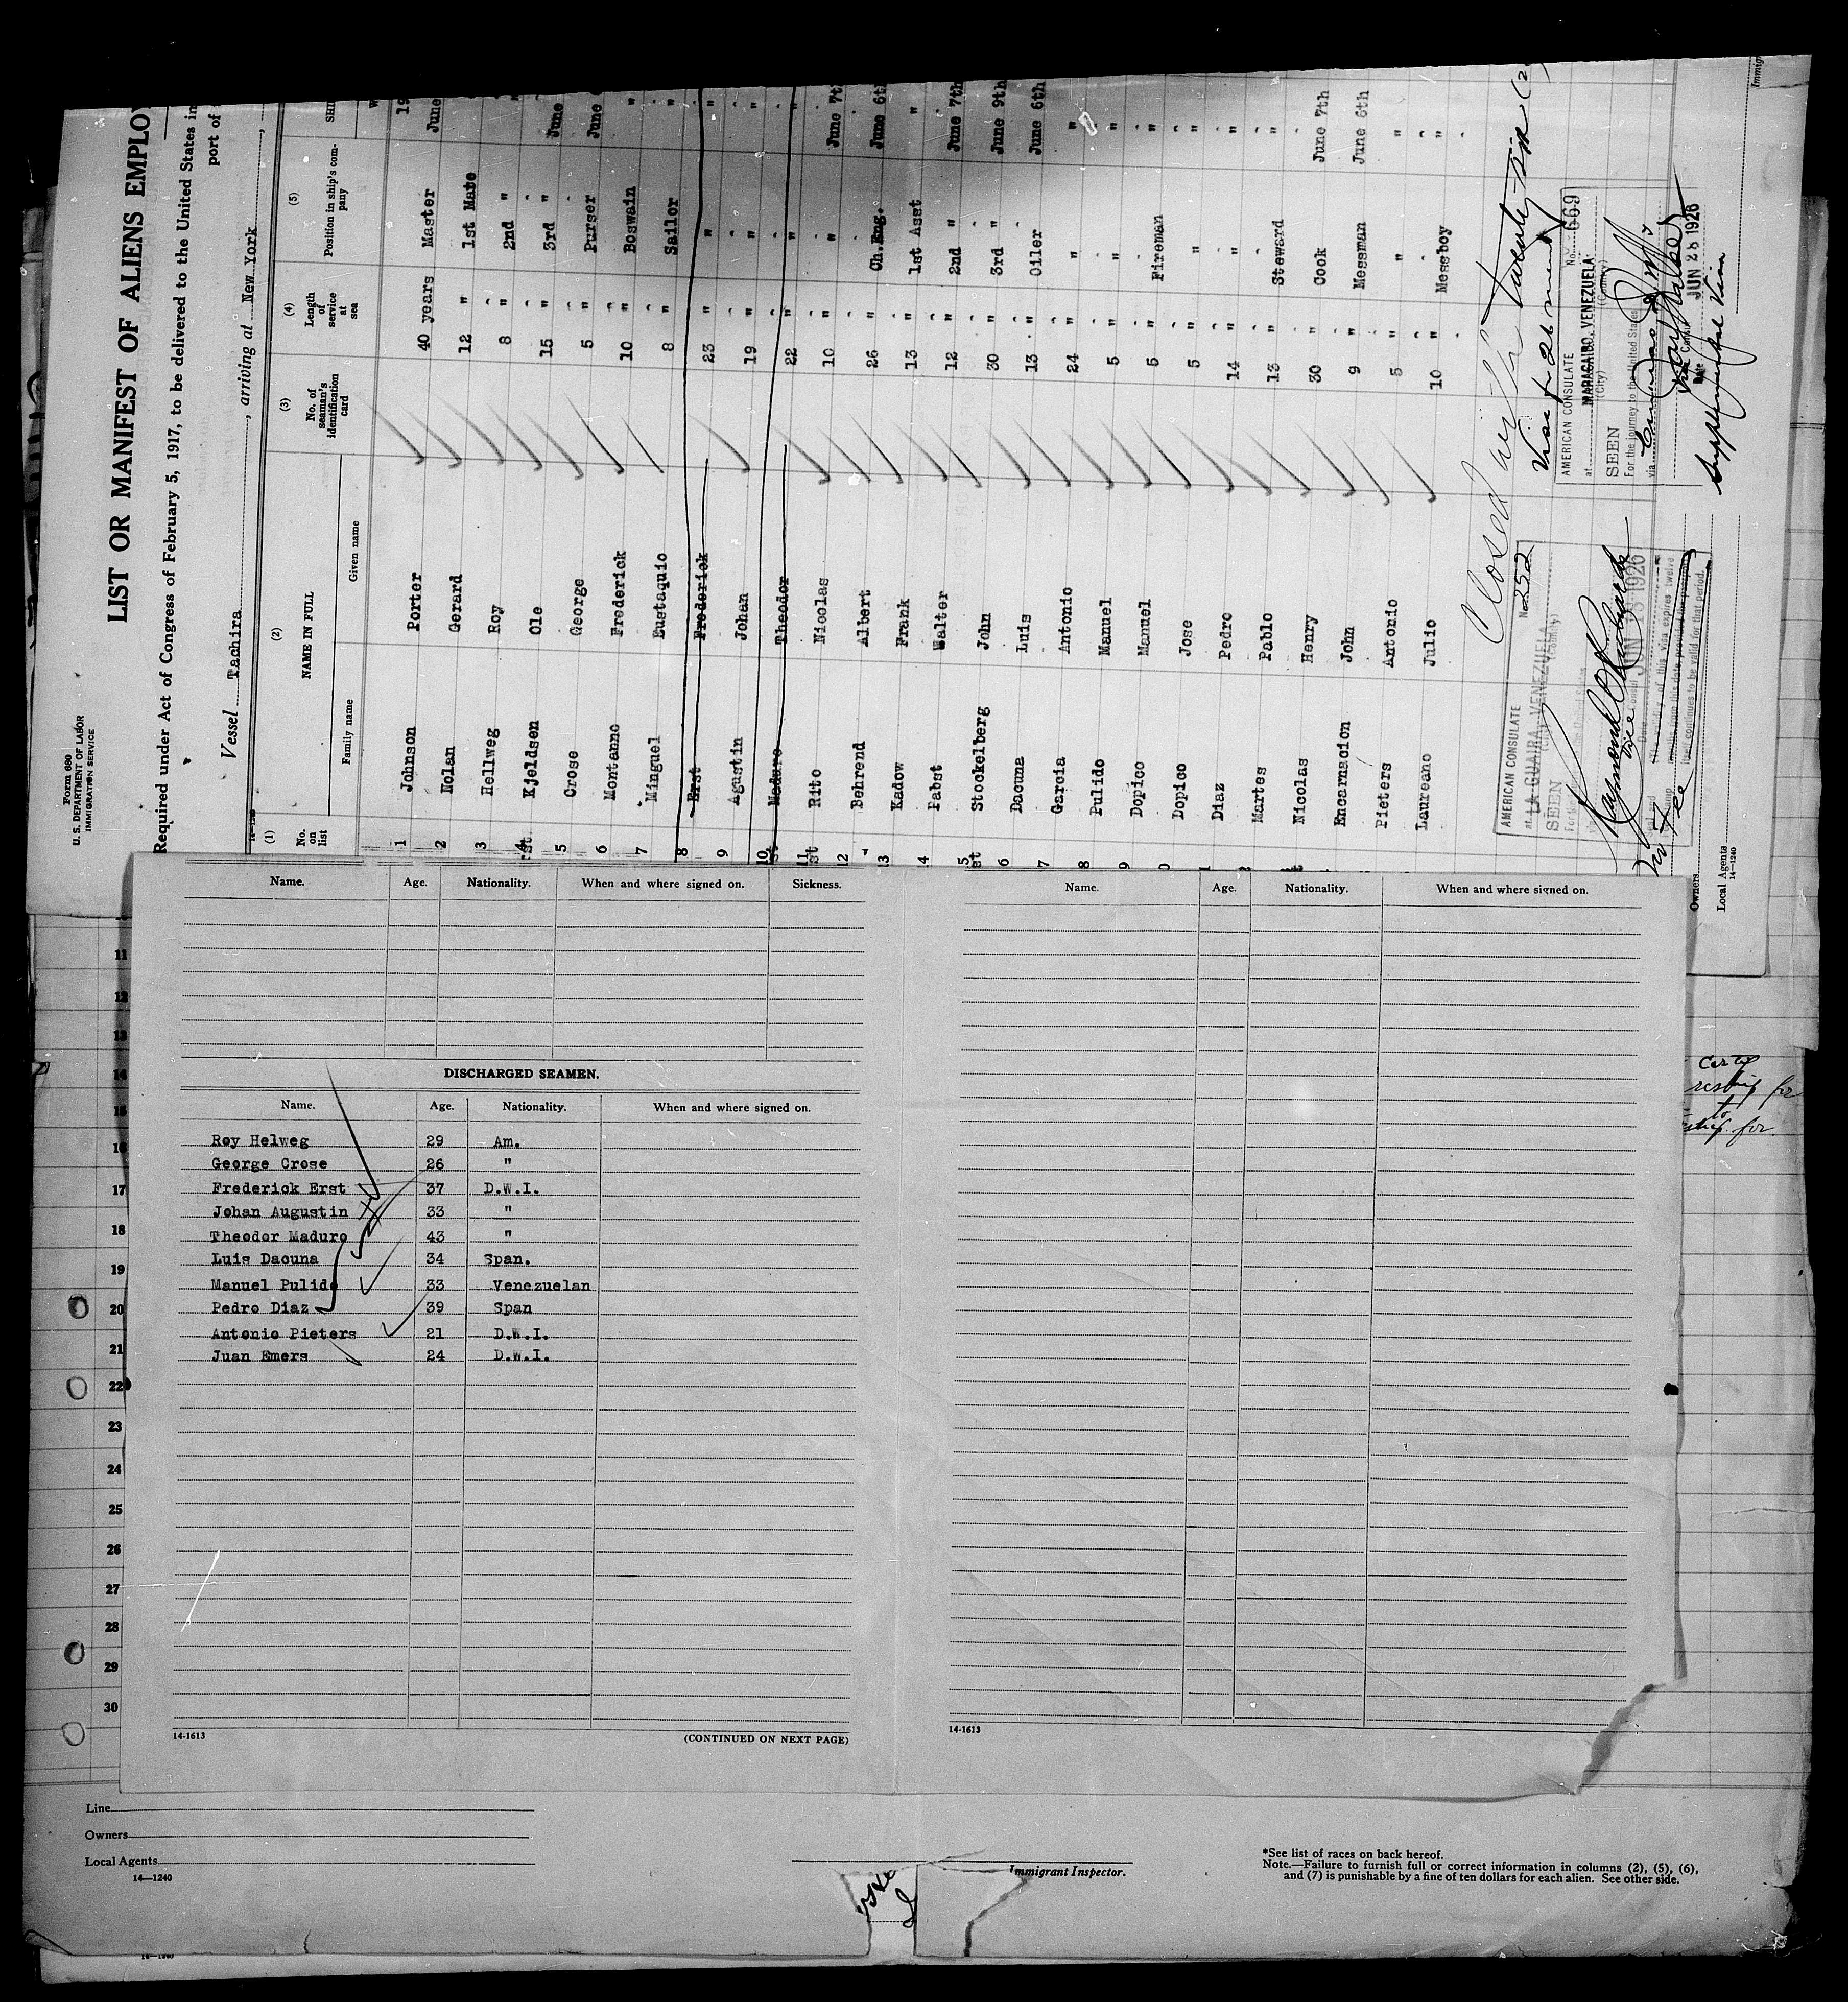 Form 680
U. S. DEPARTMENT OF LABOR
IMMIGRATION SERVICE
LIST OR MANIFEST OF ALIENS EMPLOY
Required under Act of Congress of February 5, 1917, to be delivered to the United States in
port of
Vessel Tachira, arriving at New York,
(1) (2) (3) (4) (5)
No. on list NAME IN FULL No. of seaman's identification card Length of service at sea Position in ship's company
Family name Given name
1 Johnson Porter 40 years Master June
2 Nolan Gerard 12 " 1st Mate
3 Hellweg Roy 8 " 2nd "
4 Kjeldsen Ole 15 " 3rd " June
5 Crose George 5 " Purser June
6 Montanno Frederick 10 " Boswain "
7 Minguel Eustaquio 8 " Sailor "
8 Erst Frederick 23 " " "
9 Agustin Johan 19 " " "
10 Maduro Theodor 22 " " "
11 Rito Nicolas 10 " " June 7th
12 Behrend Albert 26 " Ch.Eng. June 6th
13 Kadow Frank 13 " 1st Asst "
4 Pabst Walter 12 " 2nd " June 7th
5 Stockelberg John 30 " 3rd " June 9th
6 Dacuna Luis 13 " Oiler June 6th
7 Garcia Antonio 24 " " "
8 Pulido Manuel 5 " " "
9 Dopico Manuel 5 " Fireman "
0 Dopico Jose 5 " " "
1 Diaz Pedro 14 " " "
2 Martes Pablo 13 " Steward "
Nicolas Henry 30 " Cook June 7th
Encarnacion John 9 " Messman June 6th
Pieters Antonio 5 " " "
Laureano Julio 10 " Messboy "
Closed with twenty-six
AMERICAN CONSULATE No. 252
at LA GUAIRA, VENEZUELA
SEEN
JUN 1926
AMERICAN CONSULATE No. 669
at MARACAIBO, VENEZUELA
(City) (Country)
SEEN
For the journey to the United States
via
JUN 28 1926
No fee
Owners
Local Agents
14—1240
Name. Age. Nationality. When and where signed on. Sickness.
DISCHARGED SEAMEN.
Name. Age. Nationality. When and where signed on.
Roy Helweg 29 Am.
George Crose 26 "
Frederick Erst 37 D.W.I.
Johan Augustin 33 "
Theodor Maduro 43 "
Luis Dacuna 34 Span.
Manuel Pulido 33 Venezuelan
Pedro Diaz 39 Span
Antonio Pieters 21 D.W.I.
Juan Emers 24 D.W.I.
14-1613 (CONTINUED ON NEXT PAGE)
Name. Age. Nationality. When and where signed on.
14-1613
11
12
13
14
15
16
17
18
19
20
21
22
23
24
25
26
27
28
29
30
Line
Owners
Local Agents
14—1240
Immigrant Inspector.
*See list of races on back hereof.
Note.—Failure to furnish full or correct information in columns (2), (5), (6),
and (7) is punishable by a fine of ten dollars for each alien. See other side.